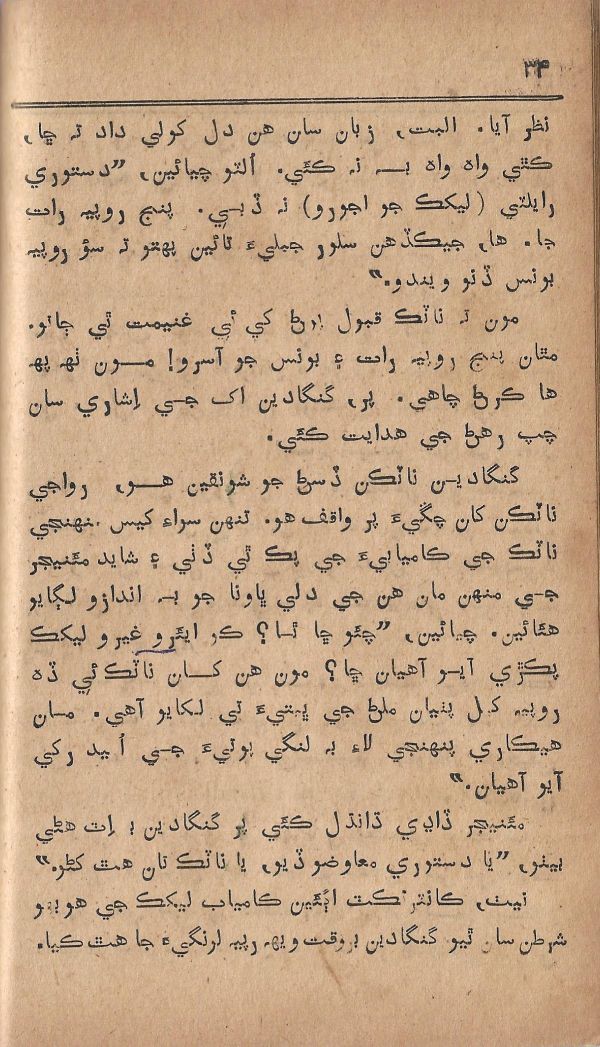 ۳۴
نظر آيا. البت، زبان سان هن دل کولي داد نہ ڇا،
ڪٿي واہ واہ بہ نہ ڪئي. اُلتو چيائين، ”دستوري
رايلٽي (ليکڪ جو اجورو) نہ ڏبي. پنج روپيہ رات
جا. ها، جيڪڏهن سلور جبليءَ تائين پهتو تہ سؤ روپيہ
بونس ڏنو ويندو.“
مون تہ ناٽڪ قبول پوڻ کي ئي غنيمت ٿي ڄاتو.
مٿان پنج روپيہ رات ۽ بونس جو آسرو! مون ٺهہ پهہ
ها ڪرڻ چاهي. پر، گنگادين اک جي اِشاري سان
چپ رهڻ جي هدايت ڪئي.
گنگادين ناٽڪن ڏسڻ جو شونقين هو، رواجي
ناٽڪن کان چڱيءَ پر واقف هو. تنهن سراء کيس منهنجي
ناٽڪ جي ڪاميابيءَ جي پڪ ٿي ڏٺي ۽ شايد مئنيجر
جي منهن مان هن جي دلي ڀاونا جو بہ اندازو لڳايو
هئائين. چيائين، ”چئو ڇا ٿا؟ ڪو ايئرو غيرو ليکڪ
پڪڙي آيو آهيان ڇا؟ مون هن کان ناٽڪ ئي ڏہ
روپيہ کل پٺيان ملڻ جي ڀيٽيءَ تي لکايو آهي. مان
هيڪاري پنهنجي لاءِ بہ لنگي ٻوٽيءَ جي اُميد رکي
آيو آهيان.“
مئنيجر ڏاڍي ڌانڌل ڪئي پر گنگادين بہ اِٽ هڻي
بيٺو، ”يا دستوري معاوضو ڏيو، يا ناٽڪ تان هٿ کڻو.“
نيٺ، ڪانٽرئڪٽ اڳئين ڪامياب ليکڪ جي هوبهو
شرطن سان ٿيو گنگادين بروقت ويهہ رپيہ لرنگيءَ جا هٿ ڪيا.